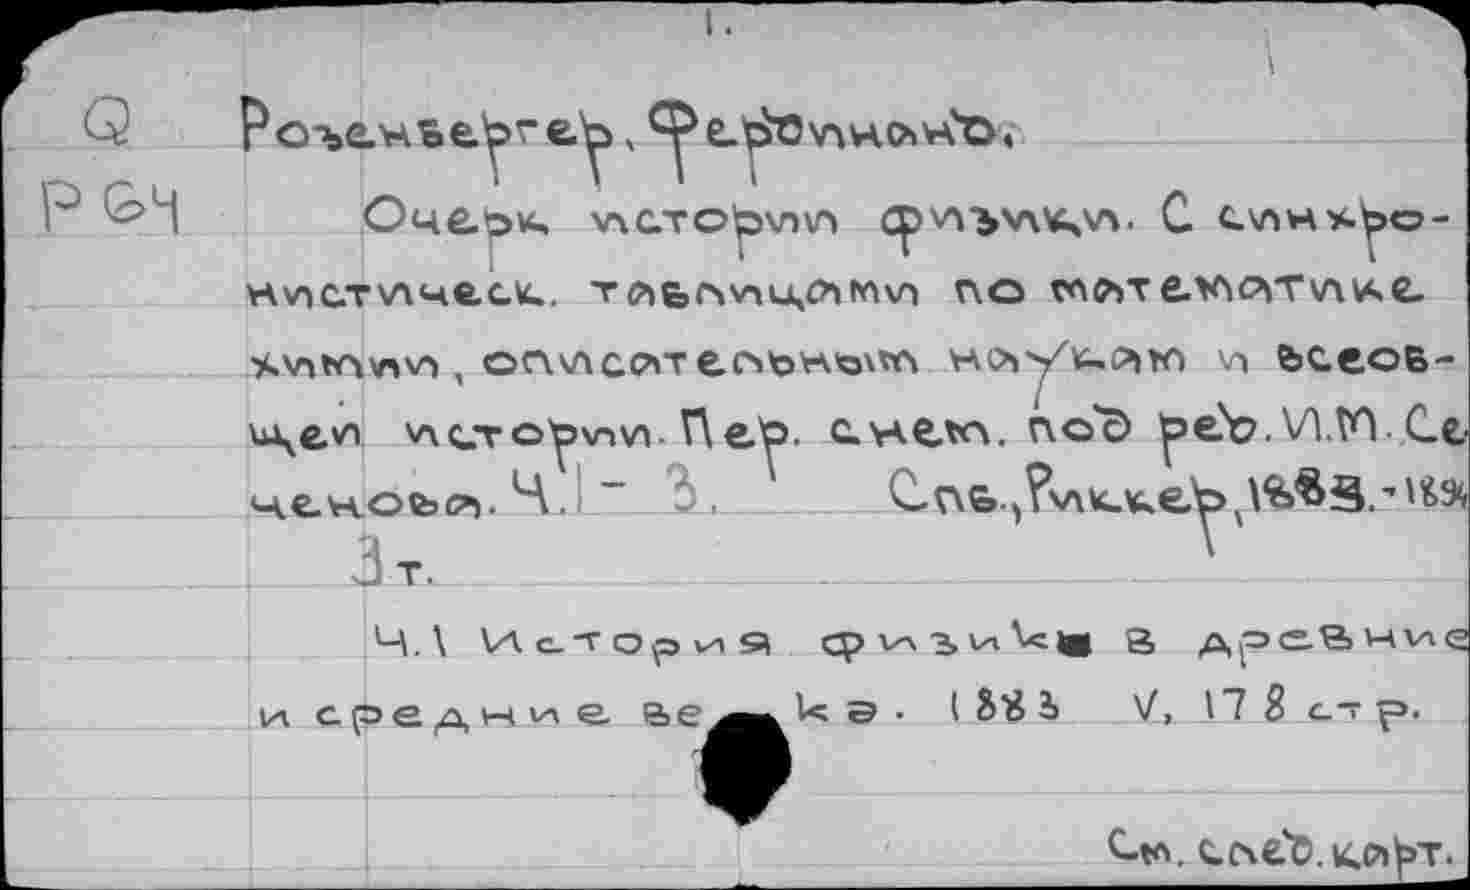 1.
Q Розенбергер, Фердинанд.
Р64 Очерк истории физики. С синхро-
нистическ. таблицами по математике
химии, описательным наукам и всеоб-
щей истории. Пер. с нем. под ред. И.М. Се
ченова. Ч.1 - 3. Спб., Риккер,
3 т.
Ч.1 История физики в древние
и средние века. 1883 V, 178 стр.
См. след. карт.